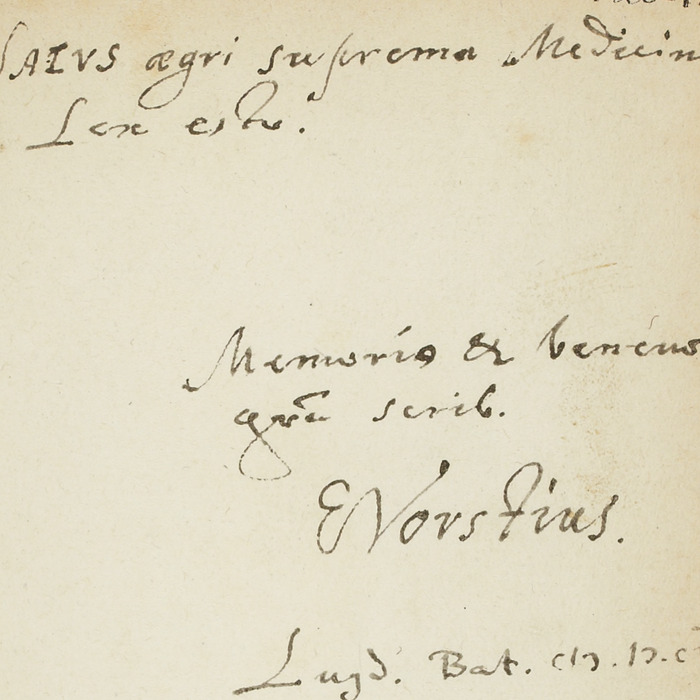 SALVS ægri suprema Medicin
Lex esto.
Memoriæ & benevo
grã scrib.
EVorstius.
Lugd. Bat. cIɔ. Iɔ. c